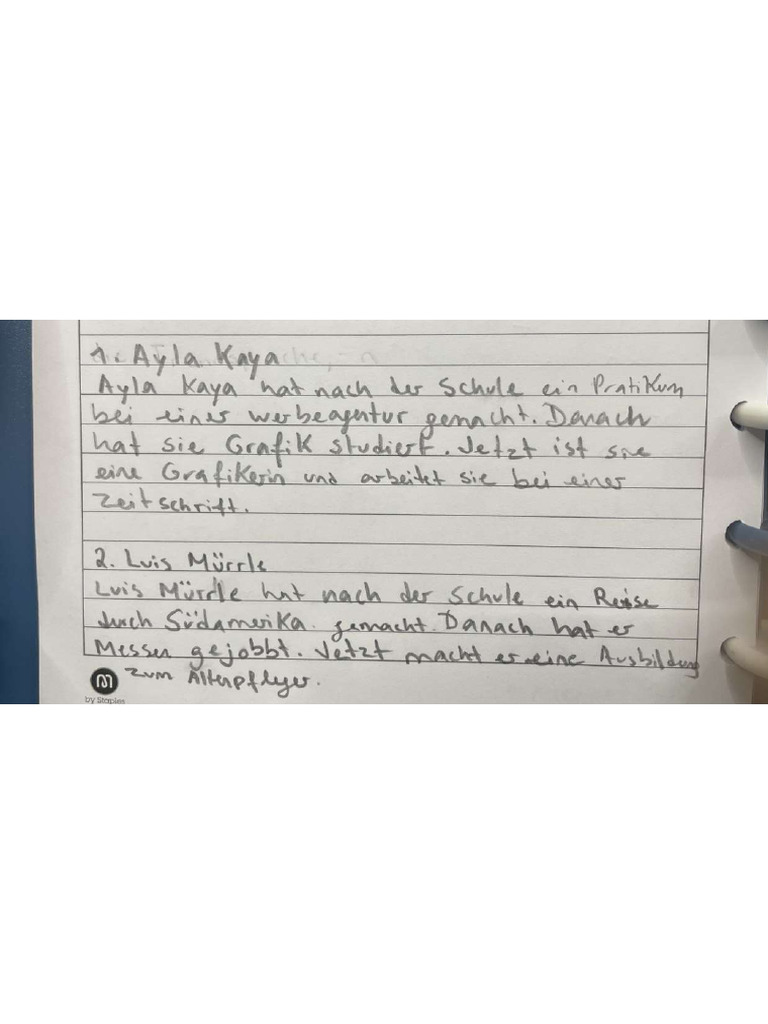 1. Ayla Kaya
Ayla Kaya hat nach der Schule ein Pratikum
bei einer werbeagentur gemacht. Danach
hat sie Grafik studiert. Jetzt ist sie
eine Grafikerin und arbeitet sie bei einer
Zeitschrift.
2. Luis Mürrle
Luis Mürrle hat nach der Schule ein Reise
durch Südamerika gemacht. Danach hat er
Messen gejobbt. Jetzt macht er eine Ausbildung
zum Altenpfleger.
by Staples